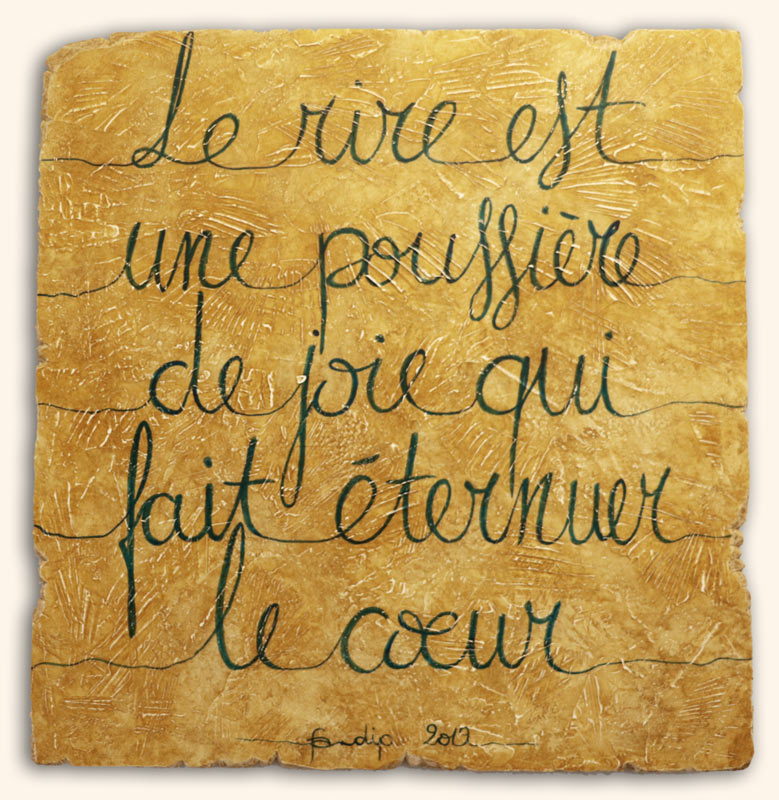 Le rire est
une poussière
de joie qui
fait éternuer
le cœur
2012